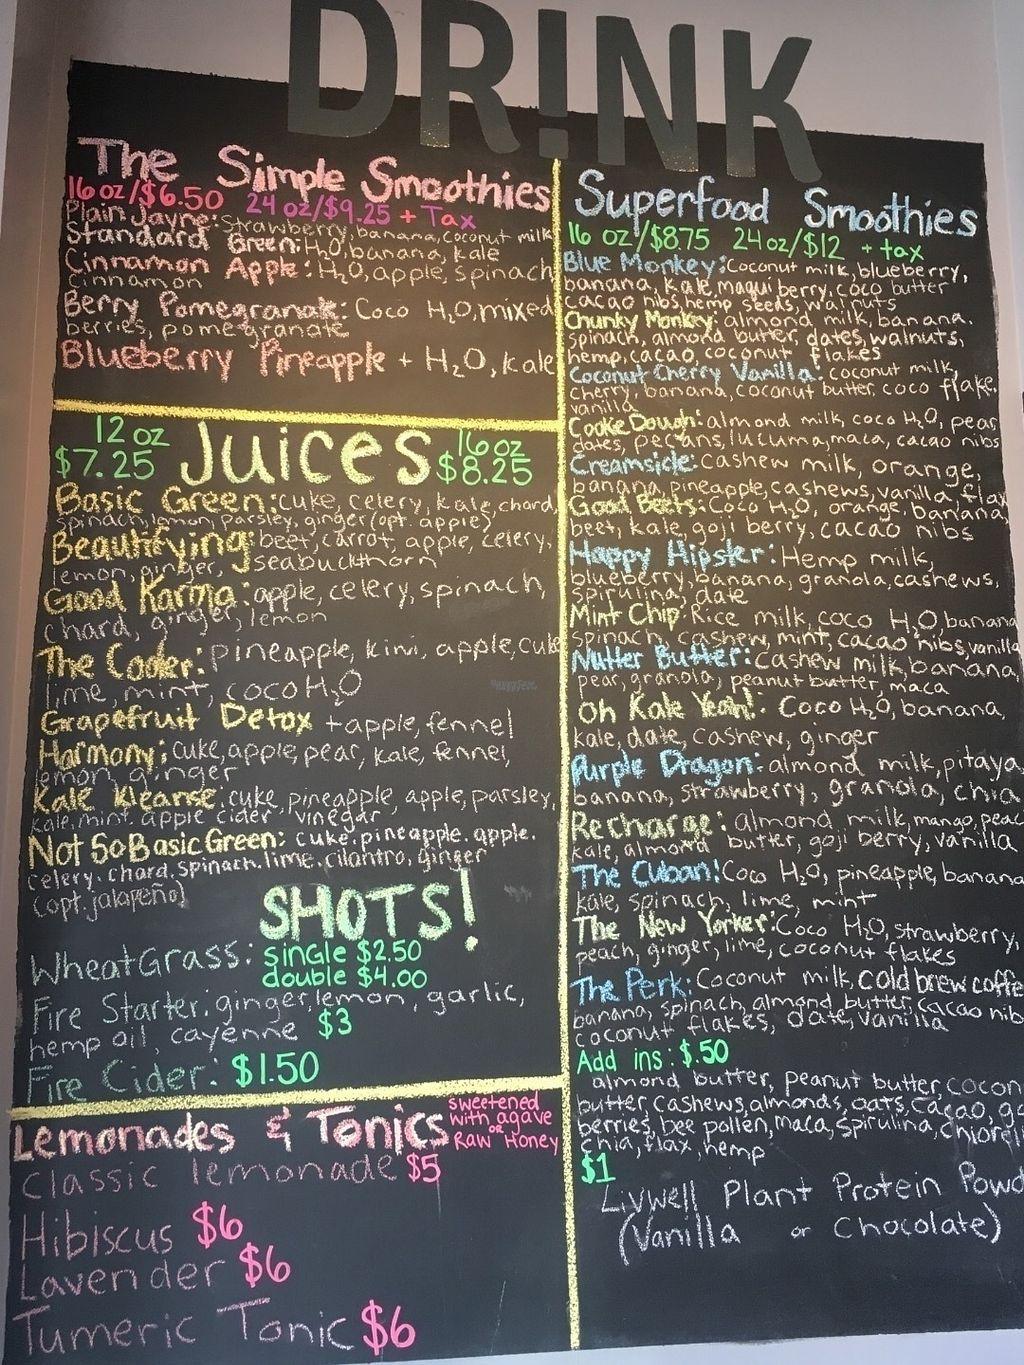 DR!NK
The Simple Smoothies
16 oz/$6.50 24 oz/$9.25 + Tax
Plain Jayne: Strawberry, banana, coconut milk
Standard Green: H2O, banana, kale
Cinnamon Apple: H2O, apple, spinach
cinnamon
Berry Pomegranate: Coco H2O, mixed
berries, pomegranate
Blueberry Pineapple + H2O, kale
12 oz
$7.25
Juices
16 oz
$8.25
Basic Green: cuke, celery, kale, chard,
spinach, lemon, parsley, ginger (opt. apple)
Beautifying: beet, carrot, apple, celery,
lemon, ginger, seabuckthorn
Good Karma: apple, celery, spinach,
chard, ginger, lemon
The Cooler: pineapple, kiwi, apple, cuke
lime, mint, coco H2O
Grapefruit Detox + apple, fennel
Harmony: cuke, apple, pear, kale, fennel,
lemon, ginger
Kale Kleanse: cuke, pineapple, apple, parsley,
kale, mint, apple cider vinegar
Not So Basic Green: cuke. pineapple. apple.
celery. chard. spinach. lime. cilantro, ginger
(opt. jalapeño)
SHOTS!
WheatGrass: single $2.50
double $4.00
Fire Starter: ginger, lemon, garlic,
hemp oil, cayenne $3
Fire Cider: $1.50
Lemonades & Tonics
sweetened
with agave
or
Raw Honey
Classic lemonade $5
Hibiscus $6
Lavender $6
Tumeric Tonic $6
Superfood Smoothies
16 oz/$8.75 24 oz/$12 + tax
Blue Monkey: Coconut milk, blueberry,
banana, kale, maqui berry, coco butter
cacao nibs, hemp seeds, walnuts
Chunky Monkey: almond milk, banana.
spinach, almond butter, dates, walnuts,
hemp, cacao, coconut flakes
Coconut Cherry Vanilla: coconut milk,
cherry, banana, coconut butter, coco flake,
vanilla
Cookie Dough: almond milk, coco H2O, pear
dates, pecans, lucuma, maca, cacao nibs
Creamsicle: cashew milk, orange,
banana, pineapple, cashews, vanilla, flax
Good Beets: Coco H2O, orange, banana,
beet, kale, goji berry, cacao nibs
Happy Hipster: Hemp milk,
blueberry, banana, granola, cashews,
spirulina, date
Mint Chip: Rice milk, coco H2O, banana
spinach, cashew, mint, cacao nibs, vanilla
Nutter Butter: Cashew milk, banana,
pear, granola, peanut butter, maca
Oh Kale Yeah!: Coco H2O, banana,
kale, date, cashew, ginger
Purple Dragon: almond milk, pitaya
banana, strawberry, granola, chia
Recharge: almond milk, mango, peac
kale, almond butter, goji berry, vanilla
The Cuban! Coco H2O, pineapple, banana
kale, spinach, lime, mint
The New Yorker: Coco H2O, strawberry,
peach, ginger, lime, coconut flakes
The Perk: Coconut milk, cold brew coffe
banana, spinach, almond butter, cacao nib
coconut flakes, date, vanilla
Add ins: $.50
almond butter, peanut butter, cocon
butter, cashews, almonds, oats, cacao, go
berries, bee pollen, maca, spirulina, chlorel
chia, flax, hemp
$1
Livwell Plant Protein Powd
(Vanilla or Chocolate)